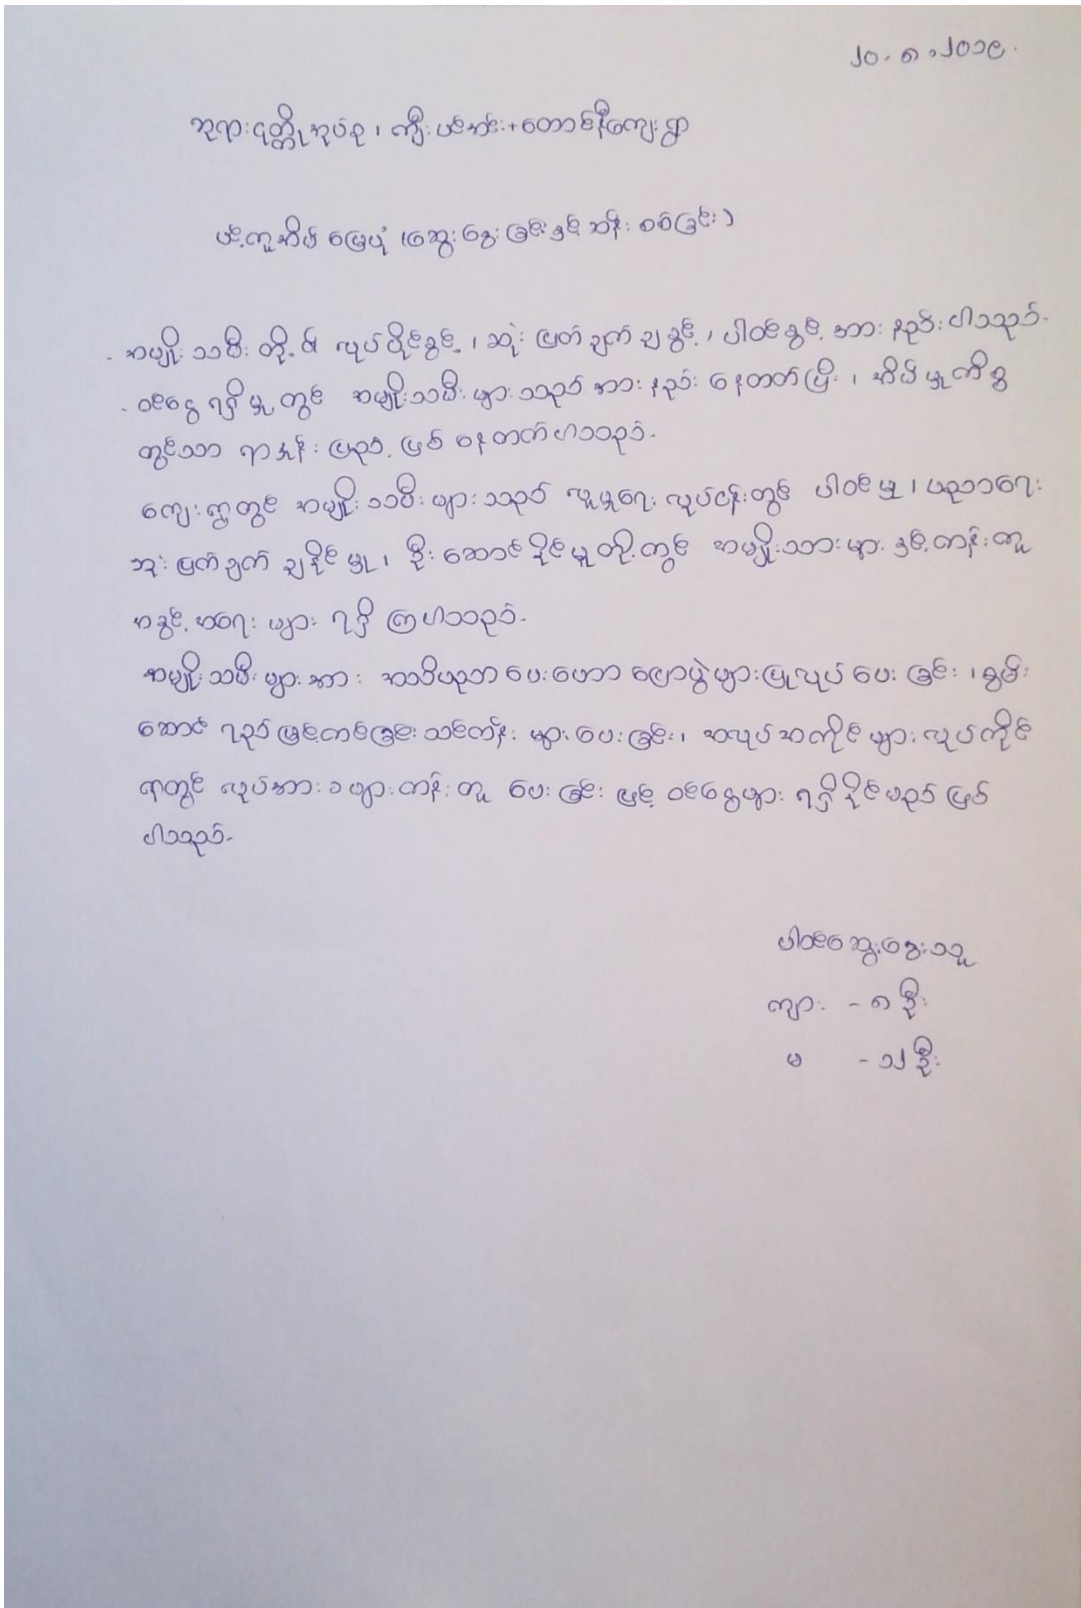 ၂၀.၈.၂၀၁၉.
ဘုရားငုတ္တိုအုပ်စု၊ ကျီးပင်အင်း+တောင်နီကျေးရွာ
ပင့်ကူအိမ် မြေပုံ (ဆွေးနွေးခြင်းနှင့် ဆန်းစစ်ခြင်း)
- အမျိုးသမီးတို့၏ လုပ်ပိုင်ခွင့်၊ ဆုံးဖြတ်ချက်ချခွင့်၊ ပါဝင်ခွင့် အားနည်းပါသည်.
- ဝင်ငွေရရှိမှုတွင် အမျိုးသမီးများသည် အားနည်းနေတတ်ပြီး၊ အိမ်မှုကိစ္စ
တွင်သာ ရာနှုန်းပြည့် ဖြစ်နေတတ်ပါသည်.
ကျေးရွာတွင် အမျိုးသမီးများသည် လူမှုရေးလုပ်ငန်းတွင် ပါဝင်မှု၊ ပညာရေး
ဆုံးဖြတ်ချက်ချနိုင်မှု၊ ဦးဆောင်နိုင်မှုတို့တွင် အမျိုးသားများနှင့်တန်းတူ
အခွင့်အရေးများ ရရှိကြပါသည်.
အမျိုးသမီးများအား အသိပညာပေးဟောပြောပွဲများပြုလုပ်ပေးခြင်း၊ စွမ်း
ဆောင်ရည်မြှင့်တင်ခြင်းသင်တန်းများပေးခြင်း၊ အလုပ်အကိုင်များလုပ်ကိုင်
ရာတွင် လုပ်အားခများတန်းတူ ပေးခြင်းဖြင့် ဝင်ငွေများ ရရှိနိုင်မည်ဖြစ်
ပါသည်.
ပါဝင်ဆွေးနွေးသူ
ကျား - ၈ ဦး
မ - ၁၂ ဦး